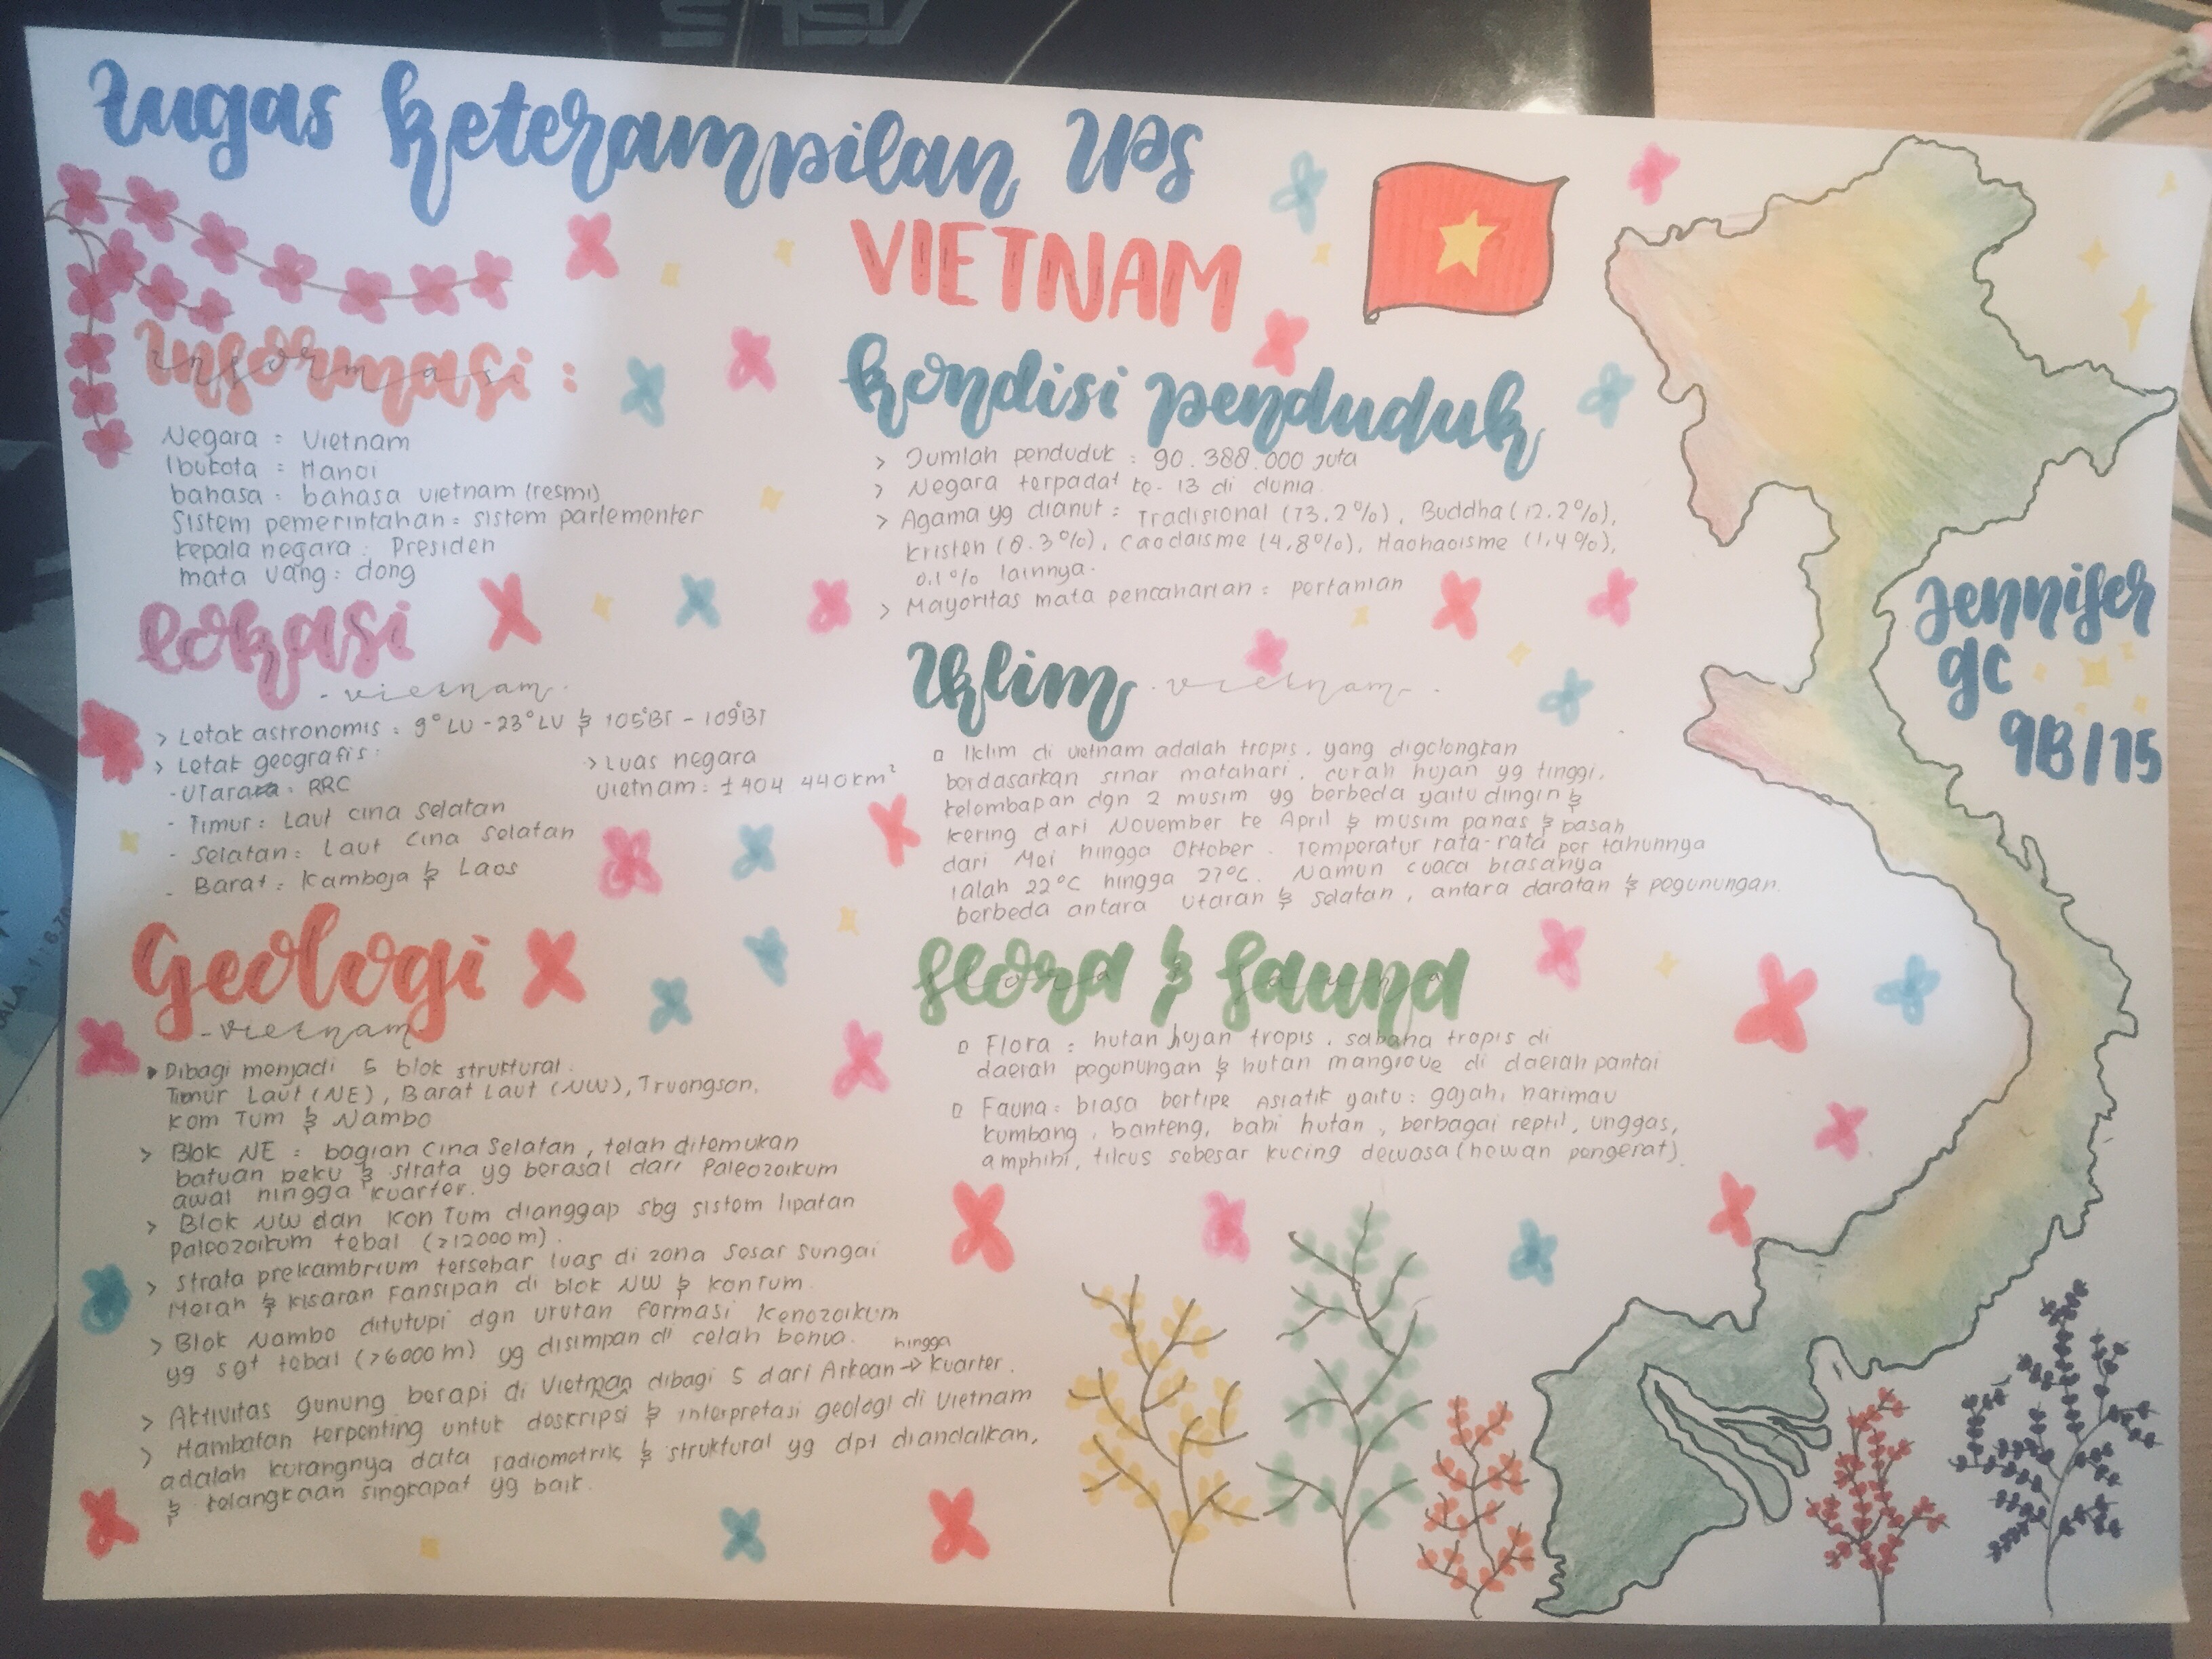 ASUS
Tugas keterampilan IPS
VIETNAM
Informasi :
Negara : Vietnam
Ibukota : Hanoi
bahasa : bahasa vietnam (resmi)
Sistem pemerintahan : sistem parlementer
kepala negara : Presiden
mata uang : dong
lokasi
- vietnam -
> Letak astronomis : 9° LU - 23° LU & 105°BT - 109°BT
> Letak geografis :
- Utara : RRC
- Timur : Laut cina selatan
- Selatan : Laut cina selatan
- Barat : Kamboja & Laos
> Luas negara
vietnam : ± 404 440 km²
Geologi
- vietnam -
Dibagi menjadi 5 blok struktural.
Timur Laut (NE), Barat Laut (NW), Truongson,
Kom Tum & Nambo
> Blok NE : bagian Cina Selatan, telah ditemukan
batuan beku & strata yg berasal dari Paleozoikum
awal hingga kuarter.
> Blok NW dan Kon Tum dianggap sbg sistem lipatan
paleozoikum tebal (>12000 m).
> Strata prekambrium tersebar luas di zona sesar sungai
Merah & kisaran Fansipan di blok NW & konTum.
> Blok Nambo ditutupi dgn urutan formasi Kenozoikum
yg sgt tebal (>6000 m) yg disimpan di celah benua.
> Aktivitas gunung berapi di Vietman dibagi 5 dari Arkean → hingga Kuarter.
> Hambatan terpenting untuk deskripsi & interpretasi geologi di Vietnam
adalah kurangnya data radiometrik & struktural yg dpt diandalkan,
& kelangkaan singkapat yg baik.
kondisi penduduk
> Jumlah penduduk : 90.388.000 juta
> Negara terpadat ke-13 di dunia.
> Agama yg dianut : Tradisional (73.2%), Buddha (12.2%),
Kristen (8.3%), Caodaisme (4,8%), Haohaoisme (1,4%),
0.1% lainnya.
> Mayoritas mata pencaharian : pertanian
Iklim - vietnam -
Iklim di vietnam adalah tropis, yang digolongkan
berdasarkan sinar matahari, curah hujan yg tinggi,
kelembapan dgn 2 musim yg berbeda yaitu dingin &
kering dari November ke April & musim panas & basah
dari Mei hingga Oktober. Temperatur rata-rata per tahunnya
ialah 22°C hingga 27°C. Namun cuaca biasanya
berbeda antara utaran & selatan, antara daratan & pegunungan.
flora & fauna
Flora : hutan hujan tropis, sabana tropis di
daerah pegunungan & hutan mangrove di daerah pantai
Fauna : biasa bertipe Asiatik yaitu : gajah, harimau
kumbang, banteng, babi hutan, berbagai reptil, unggas,
amphibi, tikus sebesar kucing dewasa (hewan pengerat).
Jennifer
gc
9B/15